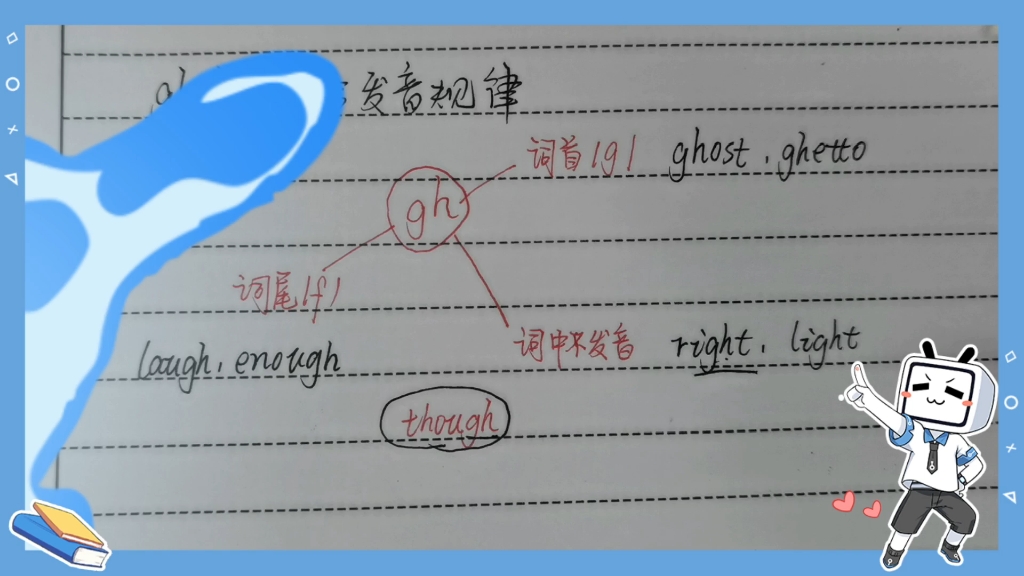 发音规律
词首/g/ ghost, ghetto
gh
词尾/f/
laugh, enough
词中不发音 right, light
though